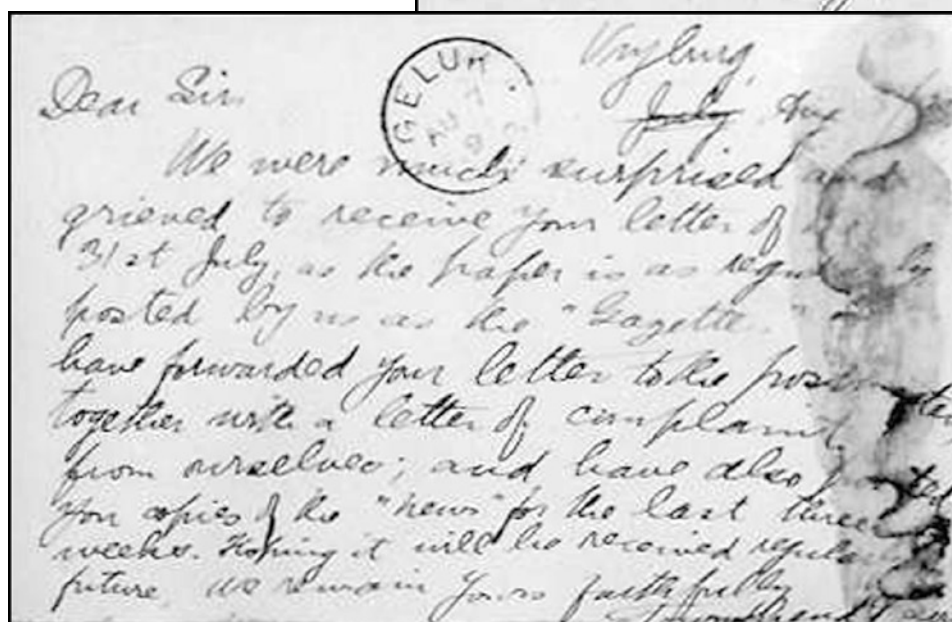 Vryburg,
Dear Sir July Aug
GELUK
We were much surprised and
grieved to receive your letter of
31st July, as the paper is as regularly
posted by us as the "Gazette."
have forwarded your letter to the
together with a letter of complaint
from ourselves; and have also
you copies of the "News" for the last three
weeks. Hoping it will be received
future, we remain Yours faithfully